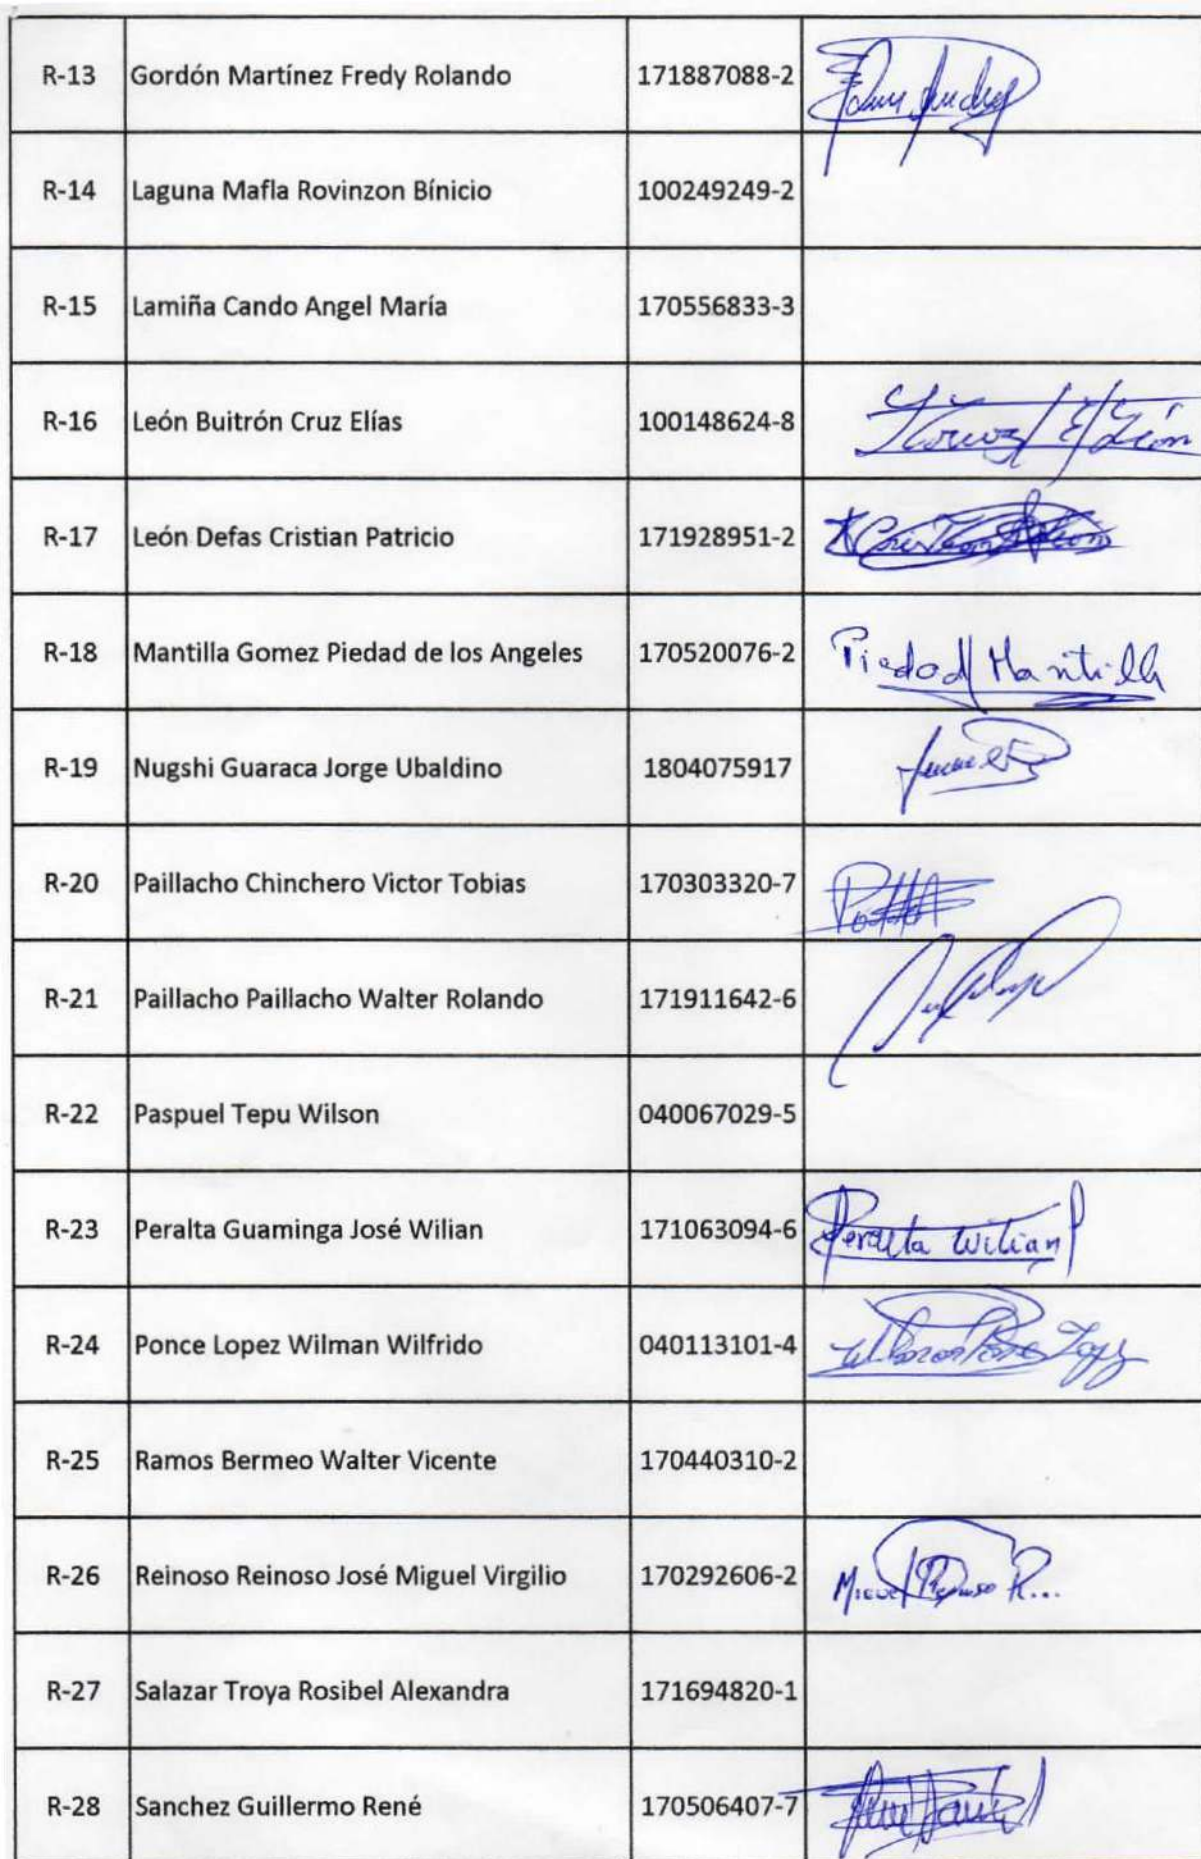 R-13 Gordón Martínez Fredy Rolando 171887088-2
R-14 Laguna Mafla Rovinzon Bínicio 100249249-2
R-15 Lamiña Cando Angel María 170556833-3
R-16 León Buitrón Cruz Elías 100148624-8 Cruz E León
R-17 León Defas Cristian Patricio 171928951-2
R-18 Mantilla Gomez Piedad de los Angeles 170520076-2 Piedad Mantilla
R-19 Nugshi Guaraca Jorge Ubaldino 1804075917
R-20 Paillacho Chinchero Victor Tobias 170303320-7
R-21 Paillacho Paillacho Walter Rolando 171911642-6
R-22 Paspuel Tepu Wilson 040067029-5
R-23 Peralta Guaminga José Wilian 171063094-6 Peralta Wilian
R-24 Ponce Lopez Wilman Wilfrido 040113101-4
R-25 Ramos Bermeo Walter Vicente 170440310-2
R-26 Reinoso Reinoso José Miguel Virgilio 170292606-2 Miguel Reinoso R...
R-27 Salazar Troya Rosibel Alexandra 171694820-1
R-28 Sanchez Guillermo René 170506407-7